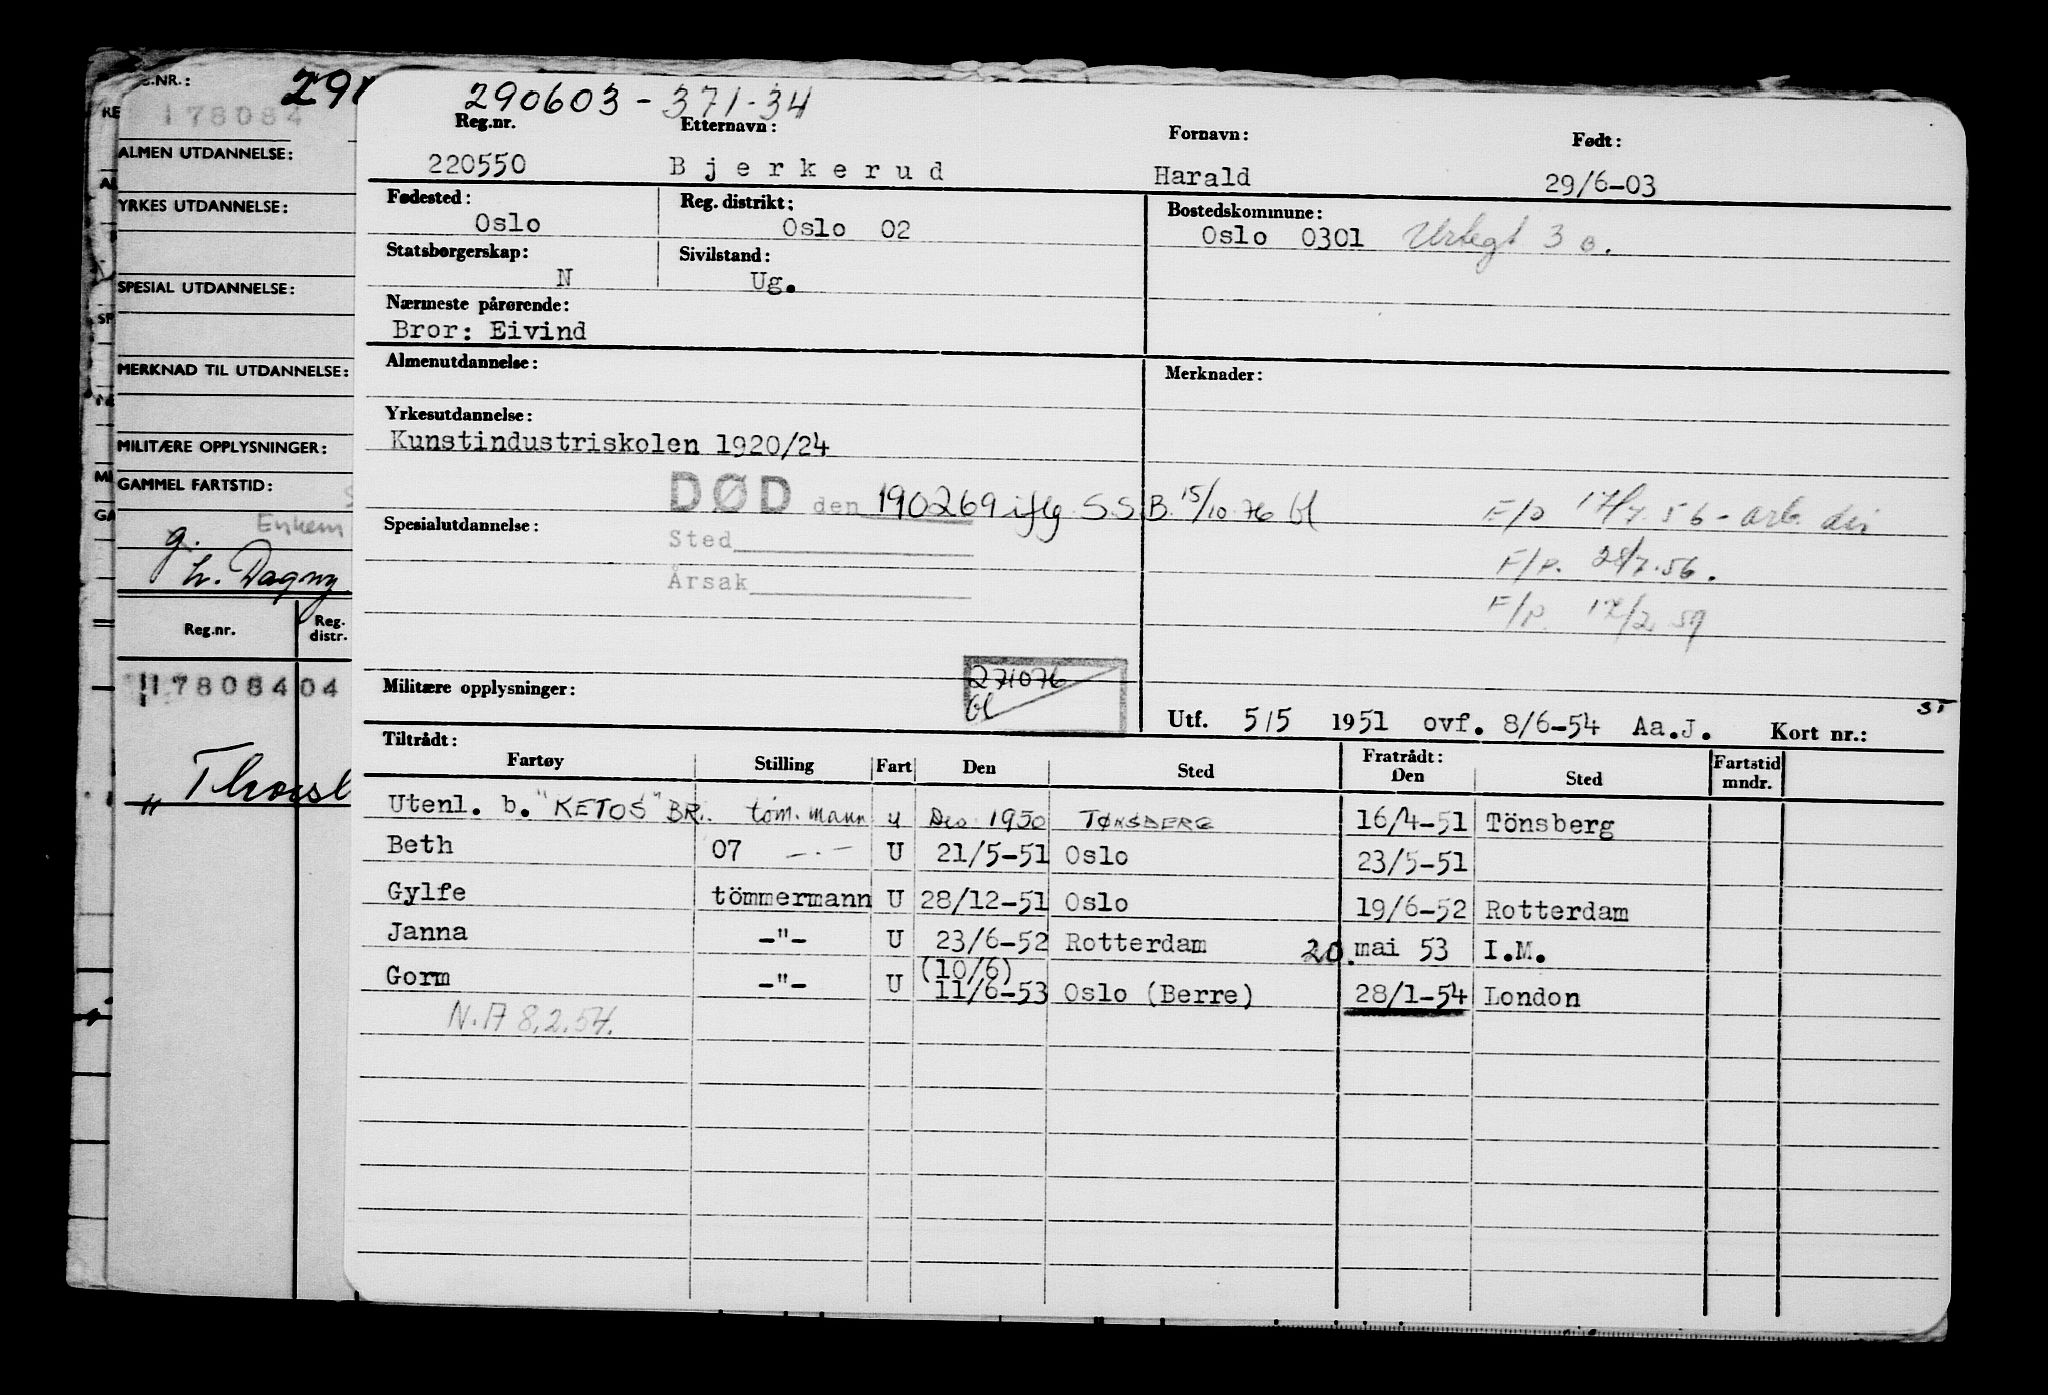 290603 - 371-34
Reg.nr. Etternavn: Fornavn: Født:
220550 Bjerkerud Harald 29/6-03
Fødested: Reg. distrikt: Bostedskommune:
Oslo Oslo 02 Oslo 0301 Urtegt 3 o.
Statsborgerskap: Sivilstand:
N Ug.
Nærmeste pårørende:
Bror: Eivind
Almenutdannelse: Merknader:
Yrkesutdannelse:
Kunstindustriskolen 1920/24
DØD den 190269 iflg S.S.B. 15/10.76 bl
F/p 17/7.56 - arb. dir
Spesialutdannelse: Sted
F/p. 28/7.56.
Årsak
F/p. 17/2 59
271076
bl
Militære opplysninger:
Utf. 5/5 1951 ovf. 8/6-54 Aa.J. Kort nr.:
Tiltrådt: Fratrådt:
Fartøy Stilling Fart Den Sted Den Sted Fartstid mndr.
Utenl. b. "KETOS" BR. töm. mann u Des 1950 TØNSBERG 16/4-51 Tönsberg
Beth 07 —.— U 21/5-51 Oslo 23/5-51
Gylfe tömmermann U 28/12-51 Oslo 19/6-52 Rotterdam
Janna -"- U 23/6-52 Rotterdam 20. mai 53 I.M.
Gorm -"- U (10/6) 11/6-53 Oslo (Berre) 28/1-54 London
N.A 8.2.54.
.NR.:
178084
ALMEN UTDANNELSE:
YRKES UTDANNELSE:
SPESIAL UTDANNELSE:
MERKNAD TIL UTDANNELSE:
MILITÆRE OPPLYSNINGER:
GAMMEL FARTSTID:
g.
h. Dagny
Reg.nr. Reg. distr.
178084 04
" Thorsl